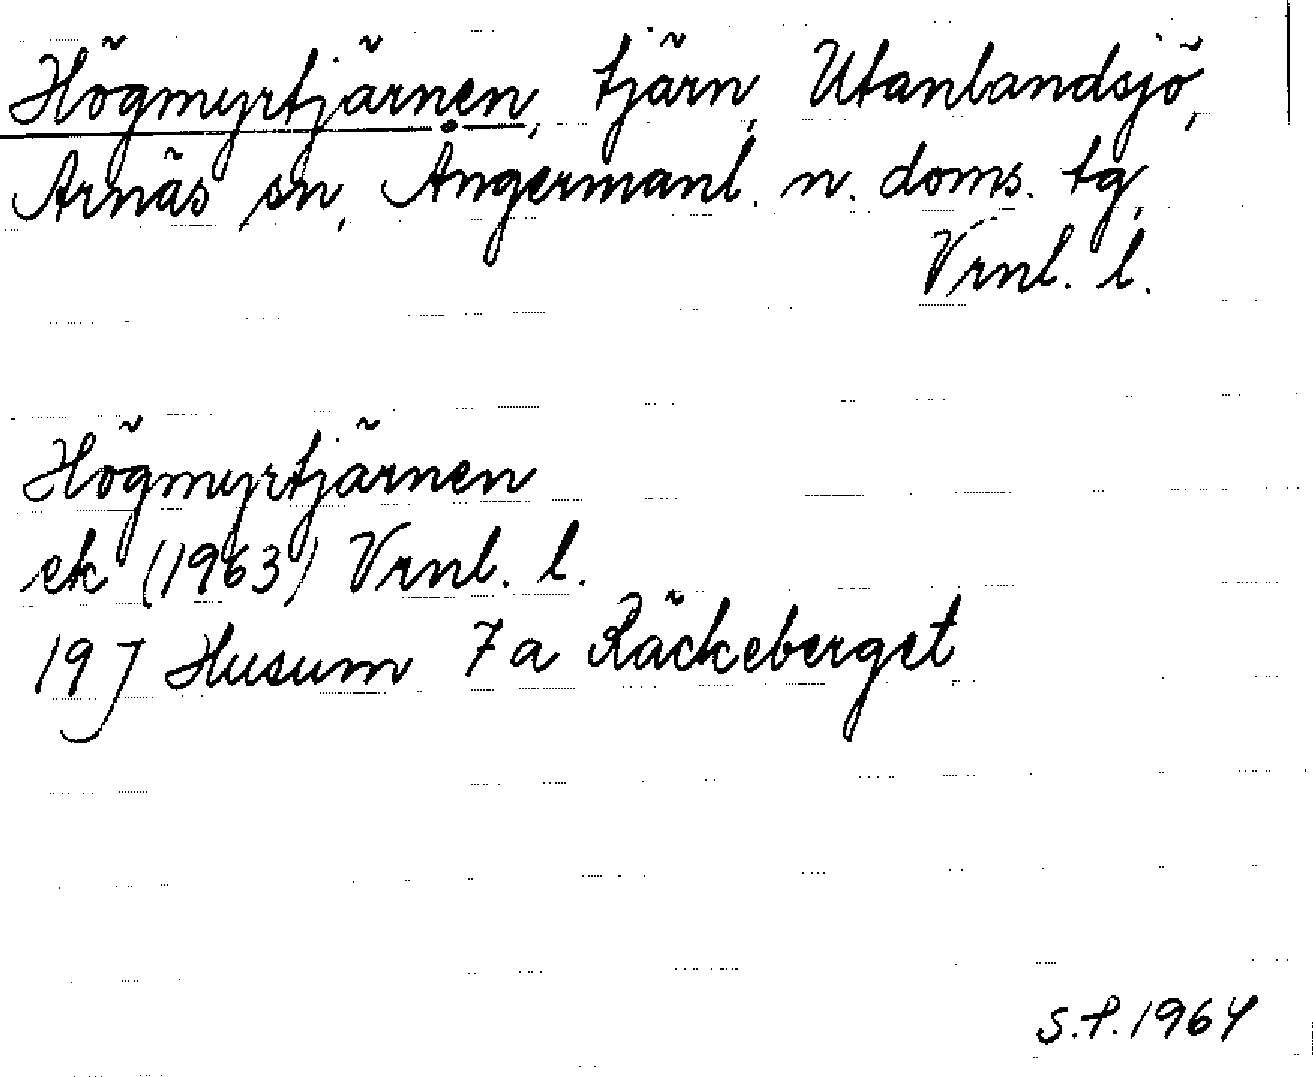 Högmyrtjärnen, tjärn, Utanlandsjö,
Arnäs sn, Ångermanl. n. doms. tg,
Vrnl. l.
Högmyrtjärnen
ek (1963) Vrnl. l.
19 J Husum 7 a Räckeberget
S.P. 1964